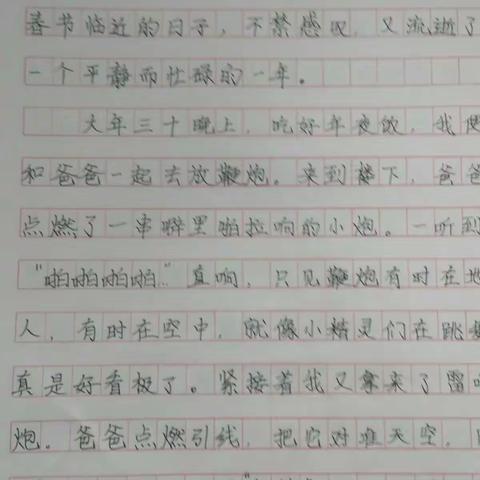 春节临近的日子，不禁感叹，又流逝了
一个平静而忙碌的一年。
大年三十晚上，吃好年夜饭，我便
和爸爸一起去放鞭炮。来到楼下，爸爸
点燃了一串噼里啪拉响的小炮。一听到
“啪啪啪啪”直响，只见鞭炮有时在地
人，有时在空中，就像小精灵们在跳
真是好看极了。紧接着我又拿来了
炮。爸爸点燃引线，把它对准天空，